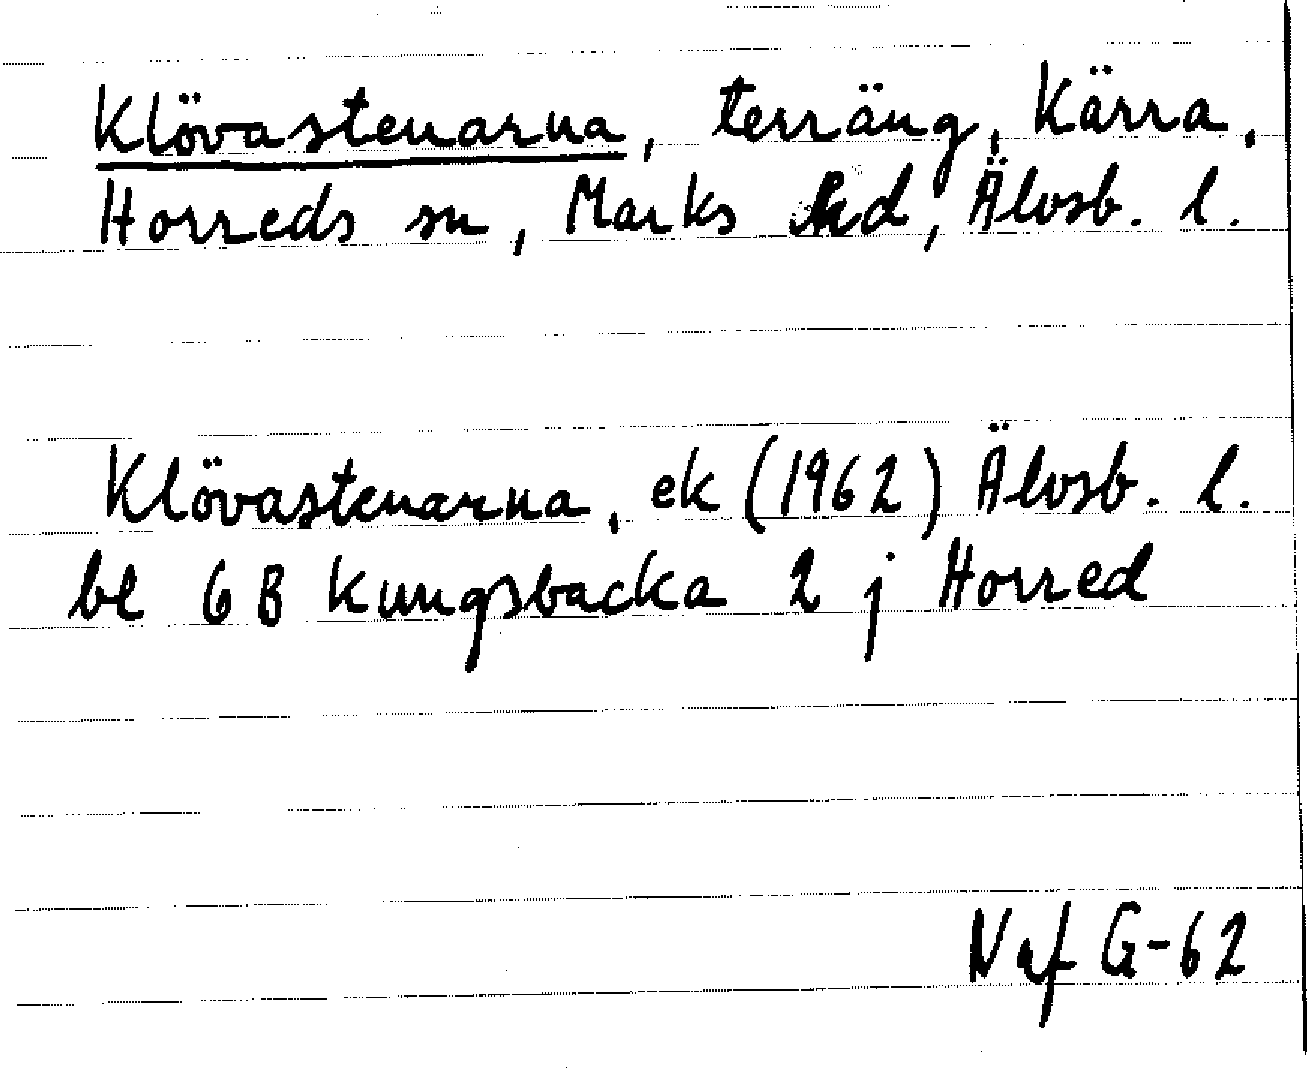 Klövastenarna, terräng, Kärra,
Horreds sn, Marks hd, Älvsb. l.
Klövastenarna, ek (1962) Älvsb. l.
bl 6 B Kungsbacka 2 j Horred
Naf G-62